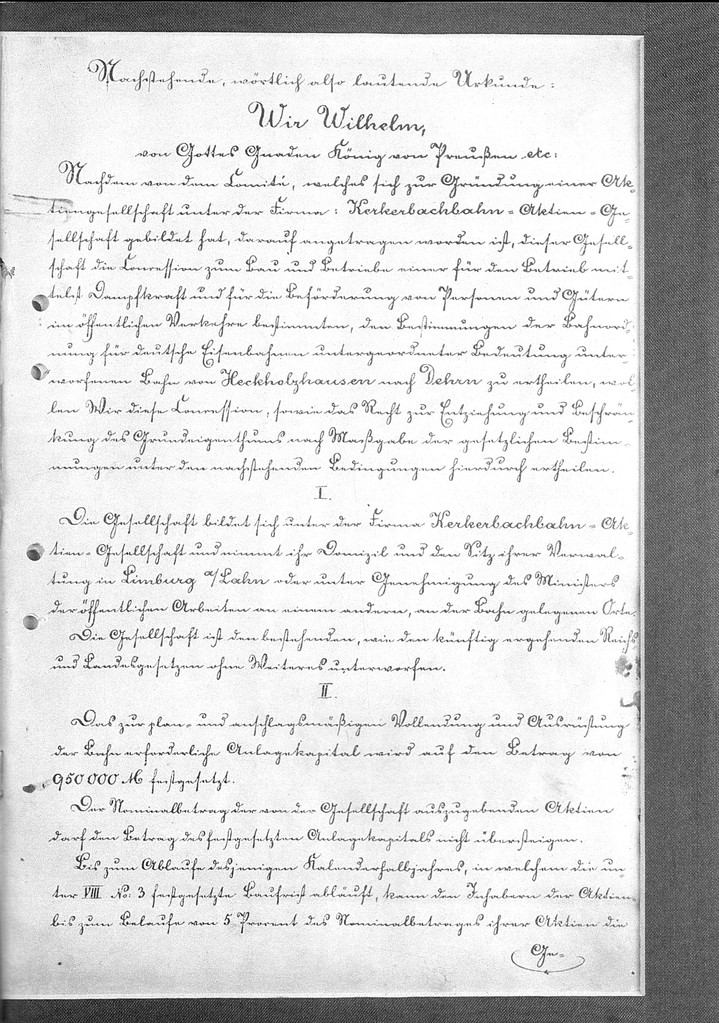 Nachstehende, wörtlich also lautende Urkunde:
Wir Wilhelm,
von Gottes Gnaden König von Preußen etc:
Nachdem von dem Comité, welches sich zur Gründung einer Ak-
tiengesellschaft unter der Firma: Kerkerbachbahn-Aktien-Ge-
sellschaft gebildet hat, darauf angetragen worden ist, dieser Gesell-
schaft die Concession zum Bau und Betriebe einer für den Betrieb mit-
telst Dampfkraft und für die Beförderung von Personen und Gütern
im öffentlichen Verkehre bestimmten, den Bestimmungen der Bahnord-
nung für deutsche Eisenbahnen untergeordneter Bedeutung unter-
worfenen Bahn von Heckholzhausen nach Dehrn zu ertheilen, wol-
len Wir diese Concession, sowie das Recht zur Entziehung und Beschrän-
kung des Grundeigenthums nach Maßgabe der gesetzlichen Bestim-
mungen unter den nachstehenden Bedingungen hierdurch ertheilen.
I.
Die Gesellschaft bildet sich unter der Firma Kerkerbachbahn-Ak-
tien-Gesellschaft und nimmt ihr Domizil und den Sitz ihrer Verwal-
tung in Limburg a/Lahn oder unter Genehmigung des Ministers
der öffentlichen Arbeiten an einem andern, an der Bahn gelegenen Orte.
Die Gesellschaft ist den bestehenden, wie den künftig ergehenden Reichs
und Landesgesetzen ohne Weiteres unterworfen.
II.
Das zur plan- und anschlagsmäßigen Vollendung und Ausrüstung
der Bahn erforderliche Anlagekapital wird auf den Betrag von
950 000 M festgesetzt.
Der Nominalbetrag der von der Gesellschaft auszugebenden Aktien
darf den Betrag des festgesetzten Anlagekapitals nicht übersteigen.
Bis zum Ablaufe desjenigen Kalenderhalbjahres, in welchem die un-
ter VIII No: 3 festgesetzte Baufrist abläuft, kann den Inhabern der Aktien
bis zum Belaufe von 5 Procent des Nominalbetrages ihrer Aktien die
Ge-